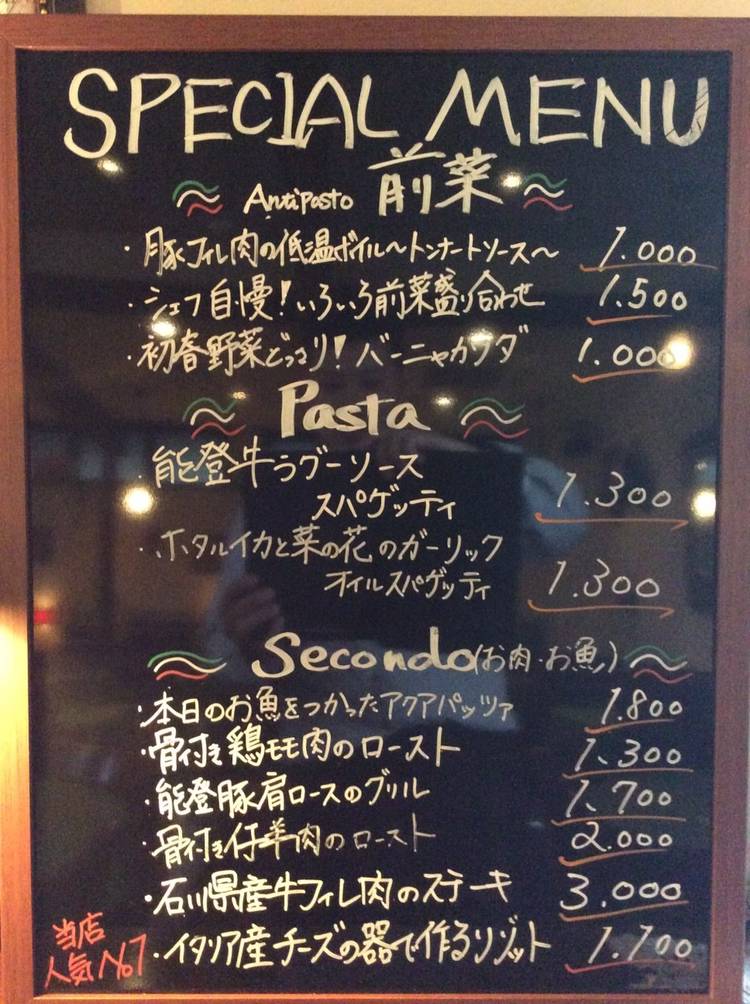 SPECIAL MENU
Antipasto 前菜
・豚フィレ肉の低温ボイル～トンナートソース～ 1.000
・シェフ自慢!いろいろ前菜盛り合わせ 1.500
・初春野菜どっさり!バーニャカウダ 1.000
Pasta
・能登牛ラグーソース
スパゲッティ 1.300
・ホタルイカと菜の花のガーリック
オイルスパゲッティ 1.300
Secondo(お肉・お魚)
・本日のお魚をつかったアクアパッツァ 1.800
・骨付き鶏モモ肉のロースト 1.300
・能登豚肩ロースのグリル 1.700
・骨付き仔羊肉のロースト 2.000
・石川県産牛フィレ肉のステーキ 3.000
当店
人気No1 ・イタリア産チーズの器で作るリゾット 1.700